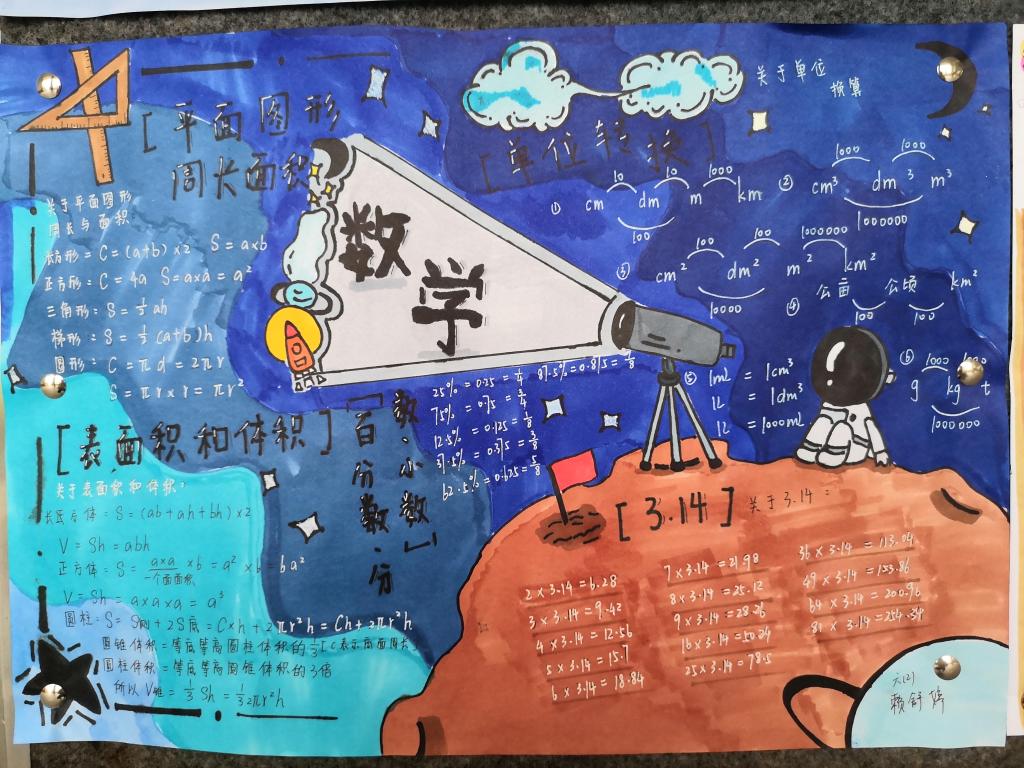 [平面图形
周长面积]
关于平面图形
周长与面积:
长方形: C=(a+b)×2 S=a×b
正方形: C=4a S=a×a=a²
三角形: S=½ah
梯形: S=½(a+b)h
圆形: C=πd=2πr
S=πr×r=πr²
数学
[单位转换]
关于单位
换算
① cm 10 dm 10 m 1000 km
100
② cm³ 1000 dm³ 1000 m³
1000000
③ cm² 100 dm² 100 m² 1000000 km²
10000
④ 公亩 公顷 km²
100 100
⑤ 1mL = 1cm³
1L = 1dm³
1L = 1000mL
⑥ g 1000 kg 1000 t
1000000
[百分数·分
数·小数]
25%=0.25=1/4 87.5%=0.875=7/8
75%=0.75=3/4
12.5%=0.125=1/8
37.5%=0.375=3/8
62.5%=0.625=5/8
[表面积和体积]
关于表面积和体积:
长正方体=S=(ab+ah+bh)×2
V=Sh=abh
正方体=S=a×a×6=a²×6=6a²
一个面面积
V=Sh=a×a×a=a³
圆柱=S=S侧+2S底=C×h+2πr²h=Ch+2πr²h
圆锥体积=等底等高圆柱体积的⅓[C表示底面周长]
圆柱体积=等底等高圆锥体积的3倍
所以V锥=⅓Sh=⅓2πr²h
[3.14] 关于3.14:
2×3.14=6.28
3×3.14=9.42
4×3.14=12.56
5×3.14=15.7
6×3.14=18.84
7×3.14=21.98
8×3.14=25.12
9×3.14=28.26
16×3.14=50.24
25×3.14=78.5
36×3.14=113.04
49×3.14=153.86
64×3.14=200.96
81×3.14=254.34
六(2)
赖舒婷